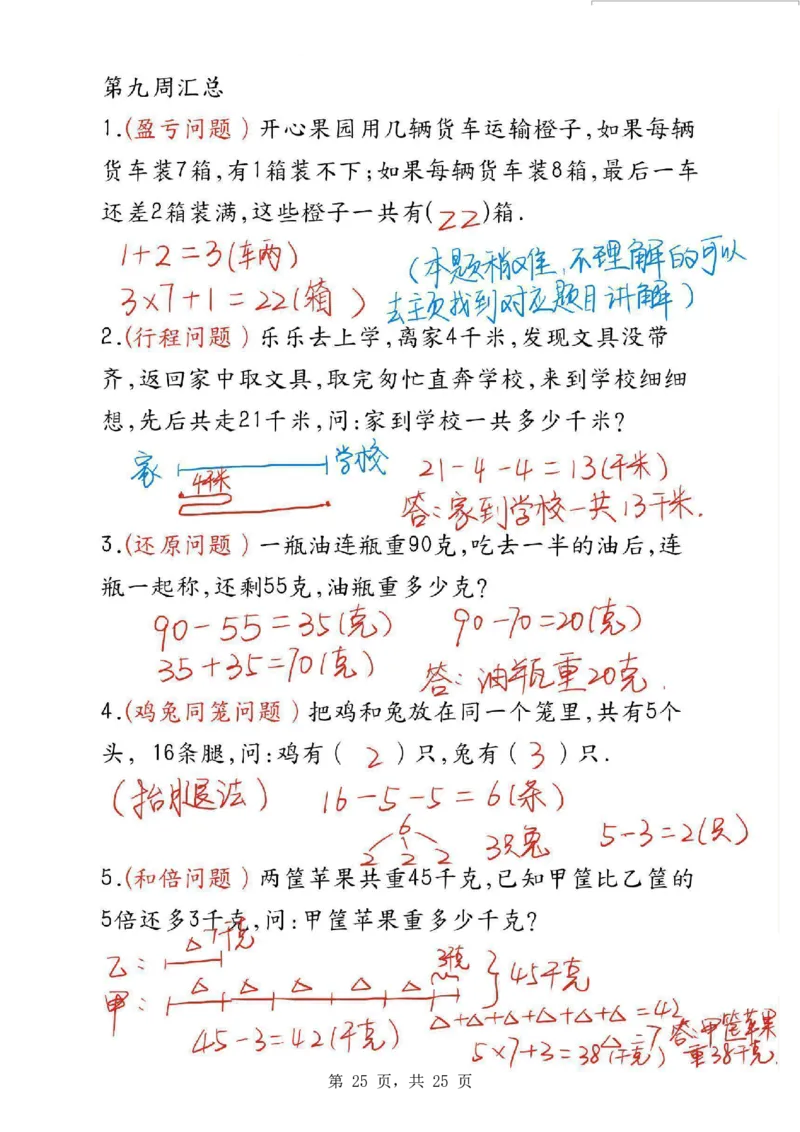 第九周汇总
1.(盈亏问题)开心果园用几辆货车运输橙子,如果每辆
货车装7箱,有1箱装不下;如果每辆货车装8箱,最后一车
还差2箱装满,这些橙子一共有(22)箱.
1+2=3(车两)
(本题稍难,不理解的可以
3×7+1=22(箱)
去主页找到对应题目讲解)
2.(行程问题)乐乐去上学,离家4千米,发现文具没带
齐,返回家中取文具,取完匆忙直奔学校,来到学校细细
想,先后共走21千米,问:家到学校一共多少千米?
家 学校
4千米
21-4-4=13(千米)
答:家到学校一共13千米.
3.(还原问题)一瓶油连瓶重90克,吃去一半的油后,连
瓶一起称,还剩55克,油瓶重多少克?
90-55=35(克) 90-70=20(克)
35+35=70(克)
答:油瓶重20克.
4.(鸡兔同笼问题)把鸡和兔放在同一个笼里,共有5个
头, 16条腿,问:鸡有( 2 )只,兔有( 3 )只.
(抬腿法) 16-5-5=6(条)
6
2 2 2
3只兔
5-3=2(只)
5.(和倍问题)两筐苹果共重45千克,已知甲筐比乙筐的
5倍还多3千克,问:甲筐苹果重多少千克?
△7千克
乙:
3千克
甲: △ △ △ △ △
}45千克
45-3=42(千克)
△+△+△+△+△+△=42
△=7
5×7+3=38(千克)
答:甲筐苹果
重38千克.
第 25 页, 共 25 页